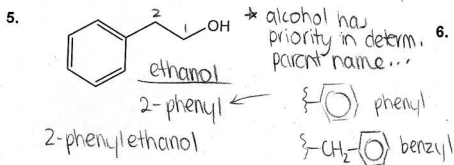 5.
2
1
OH
* alcohol has
priority in determ.
parent name...
6.
ethanol
2-phenyl
phenyl
2-phenylethanol
-CH₂-
benzyl